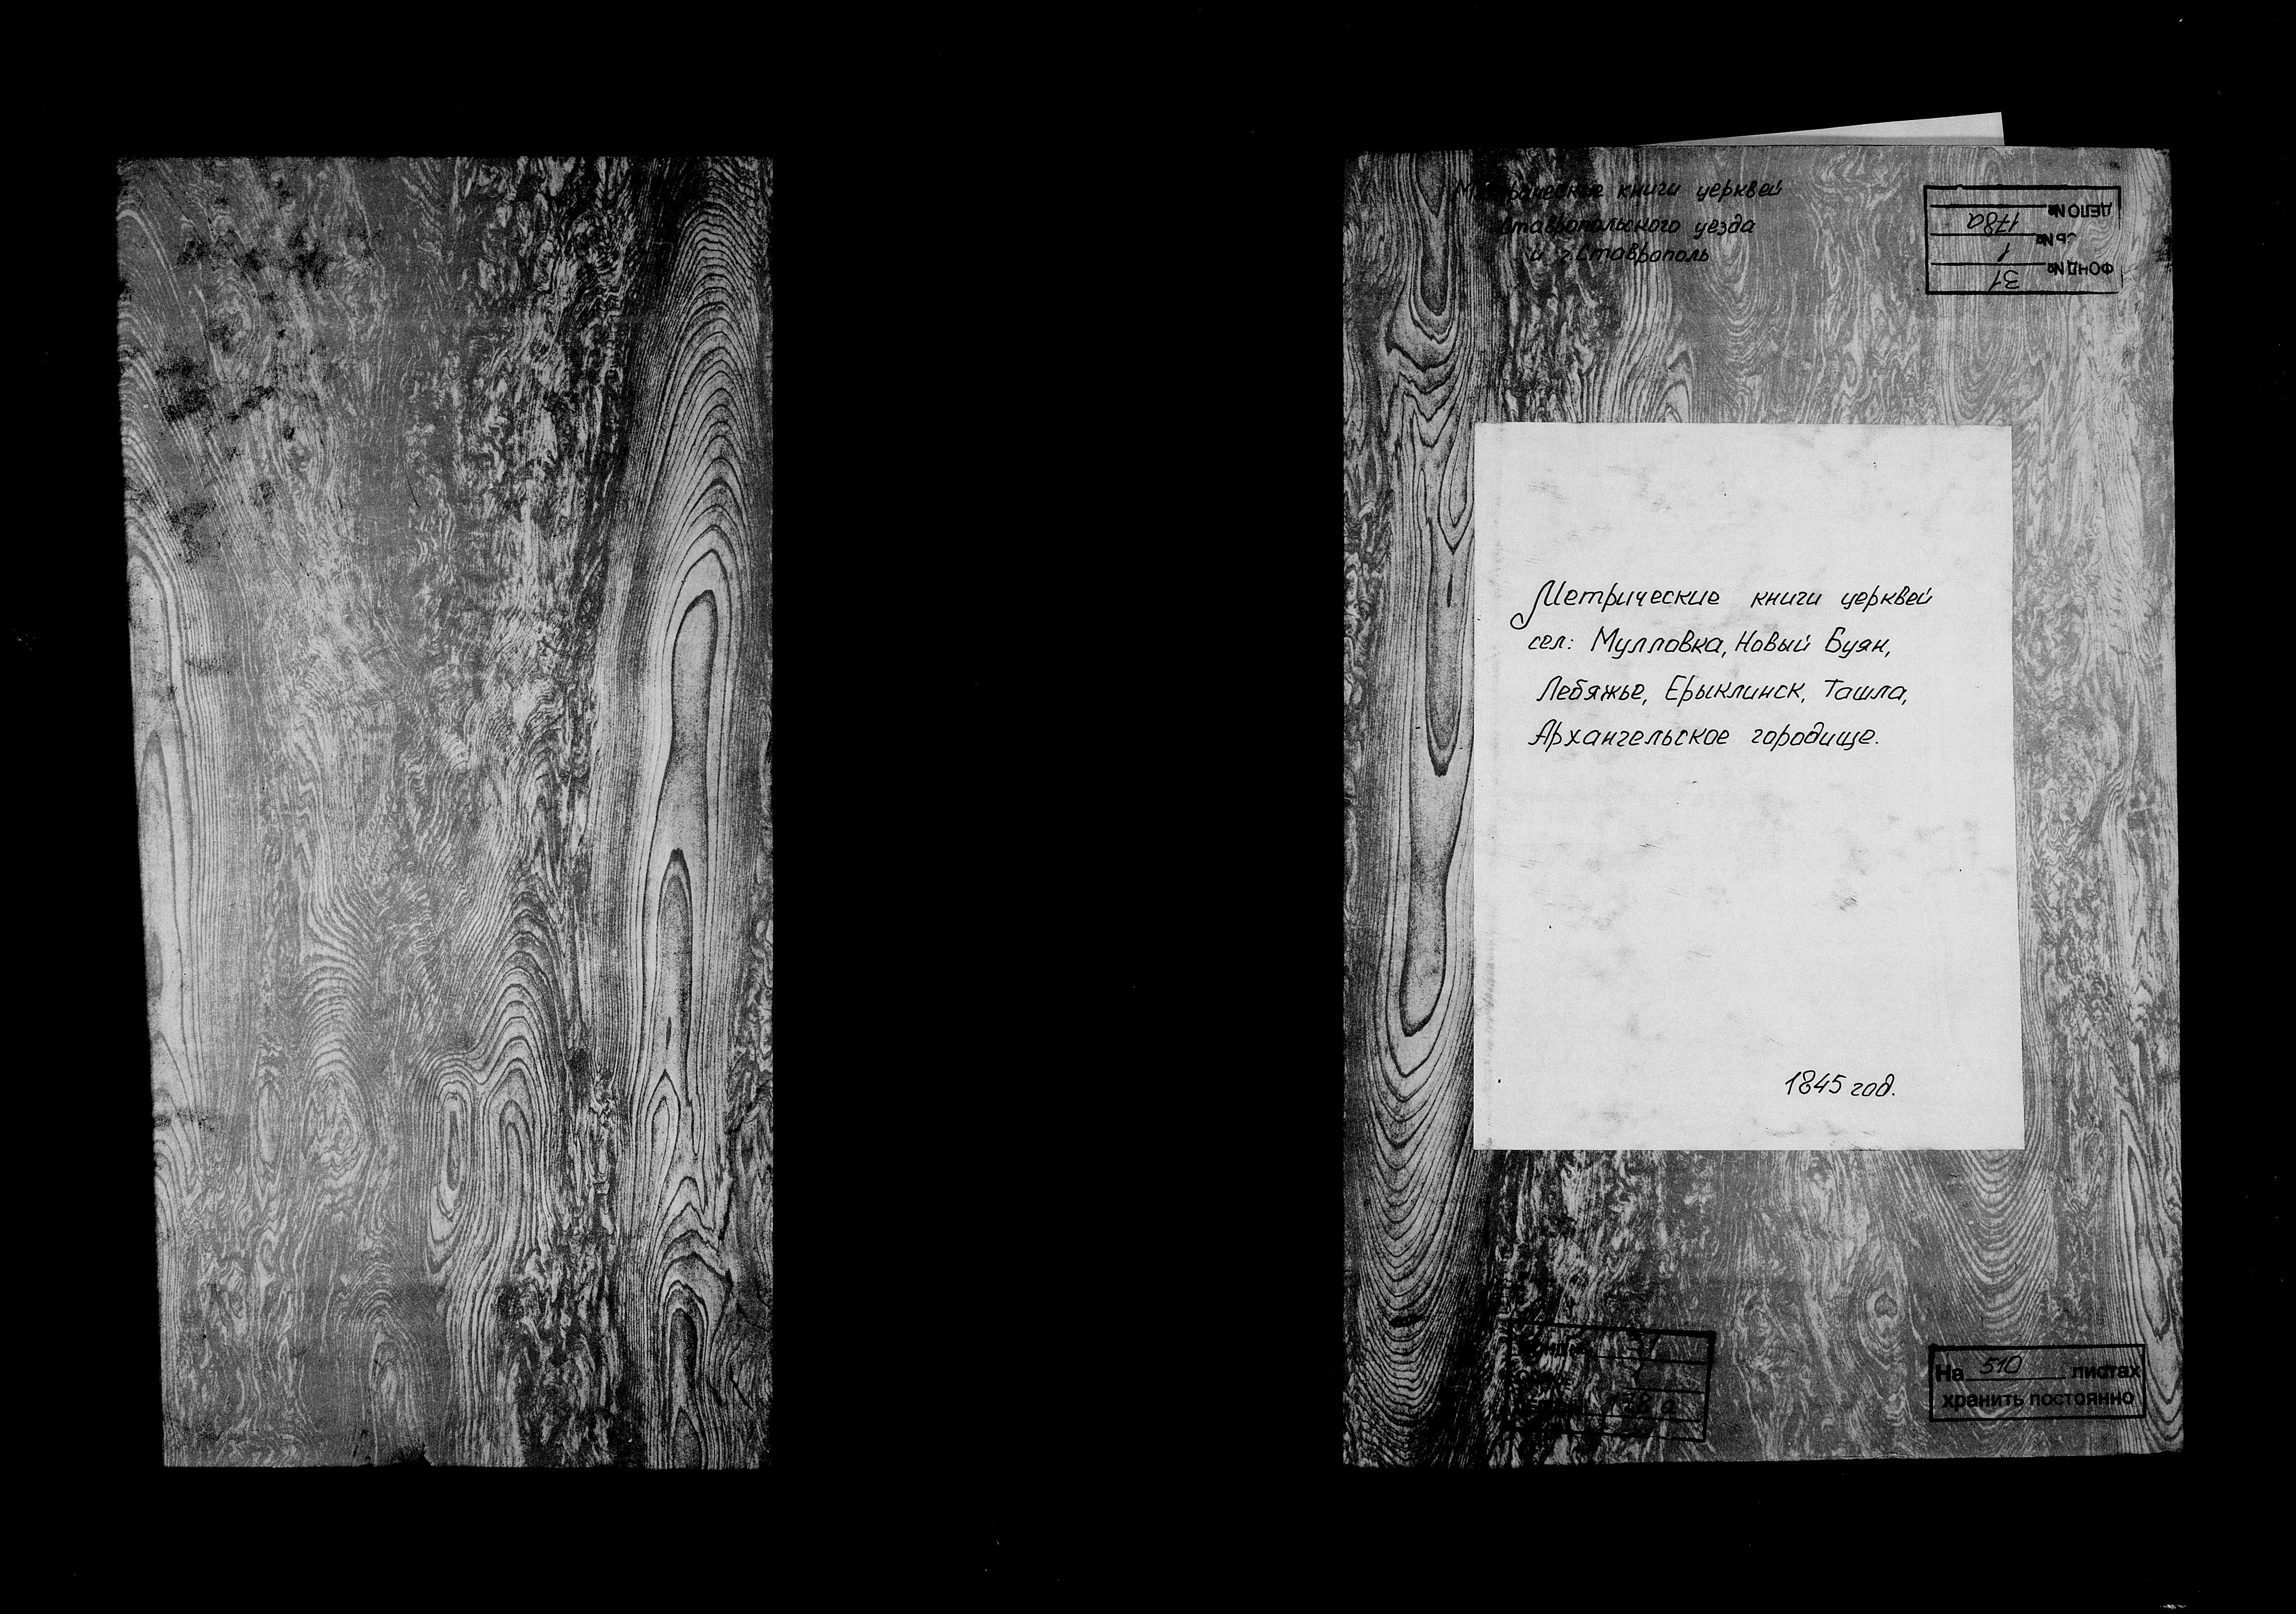 Метрические книги церквей
Ставропольского уезда
и г. Ставрополь
ФОНД № 31
1
ДЕЛО № 178а
Метрические книги церквей
сел: Мулловка, Новый Буян,
Лебяжье, Ерыклинск, Ташла,
Архангельское городище.
1845 год.
31
1
178а
На 510 листах
хранить постоянно